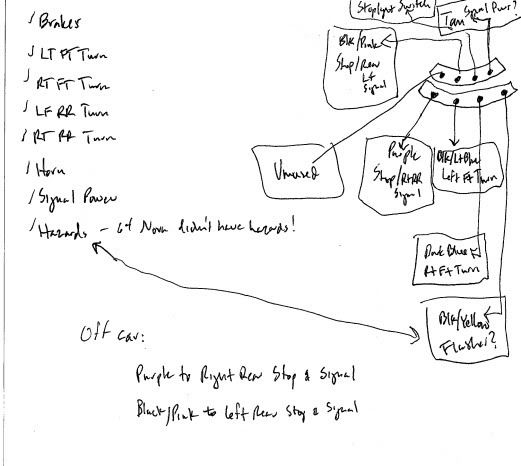 / Brakes
/ LT FT Turn
/ RT FT Turn
/ LF RR Turn
/ RT RR Turn
/ Horn
/ Signal Power
/ Hazards - 64 Nova didn't have hazards!
Stoplight Switch
Tan
Signal Pwr?
Blk/Pink
Stop/Rear
Lf
Signal
Unused
Purple
Stop/RtRR
Signal
Blk/Lt Blue
Left Ft Turn
Dark Blue
Rt Ft Turn
Blk/Yellow
Flasher?
Off car:
Purple to Right Rear Stop & Signal
Black/Pink to Left Rear Stop & Signal